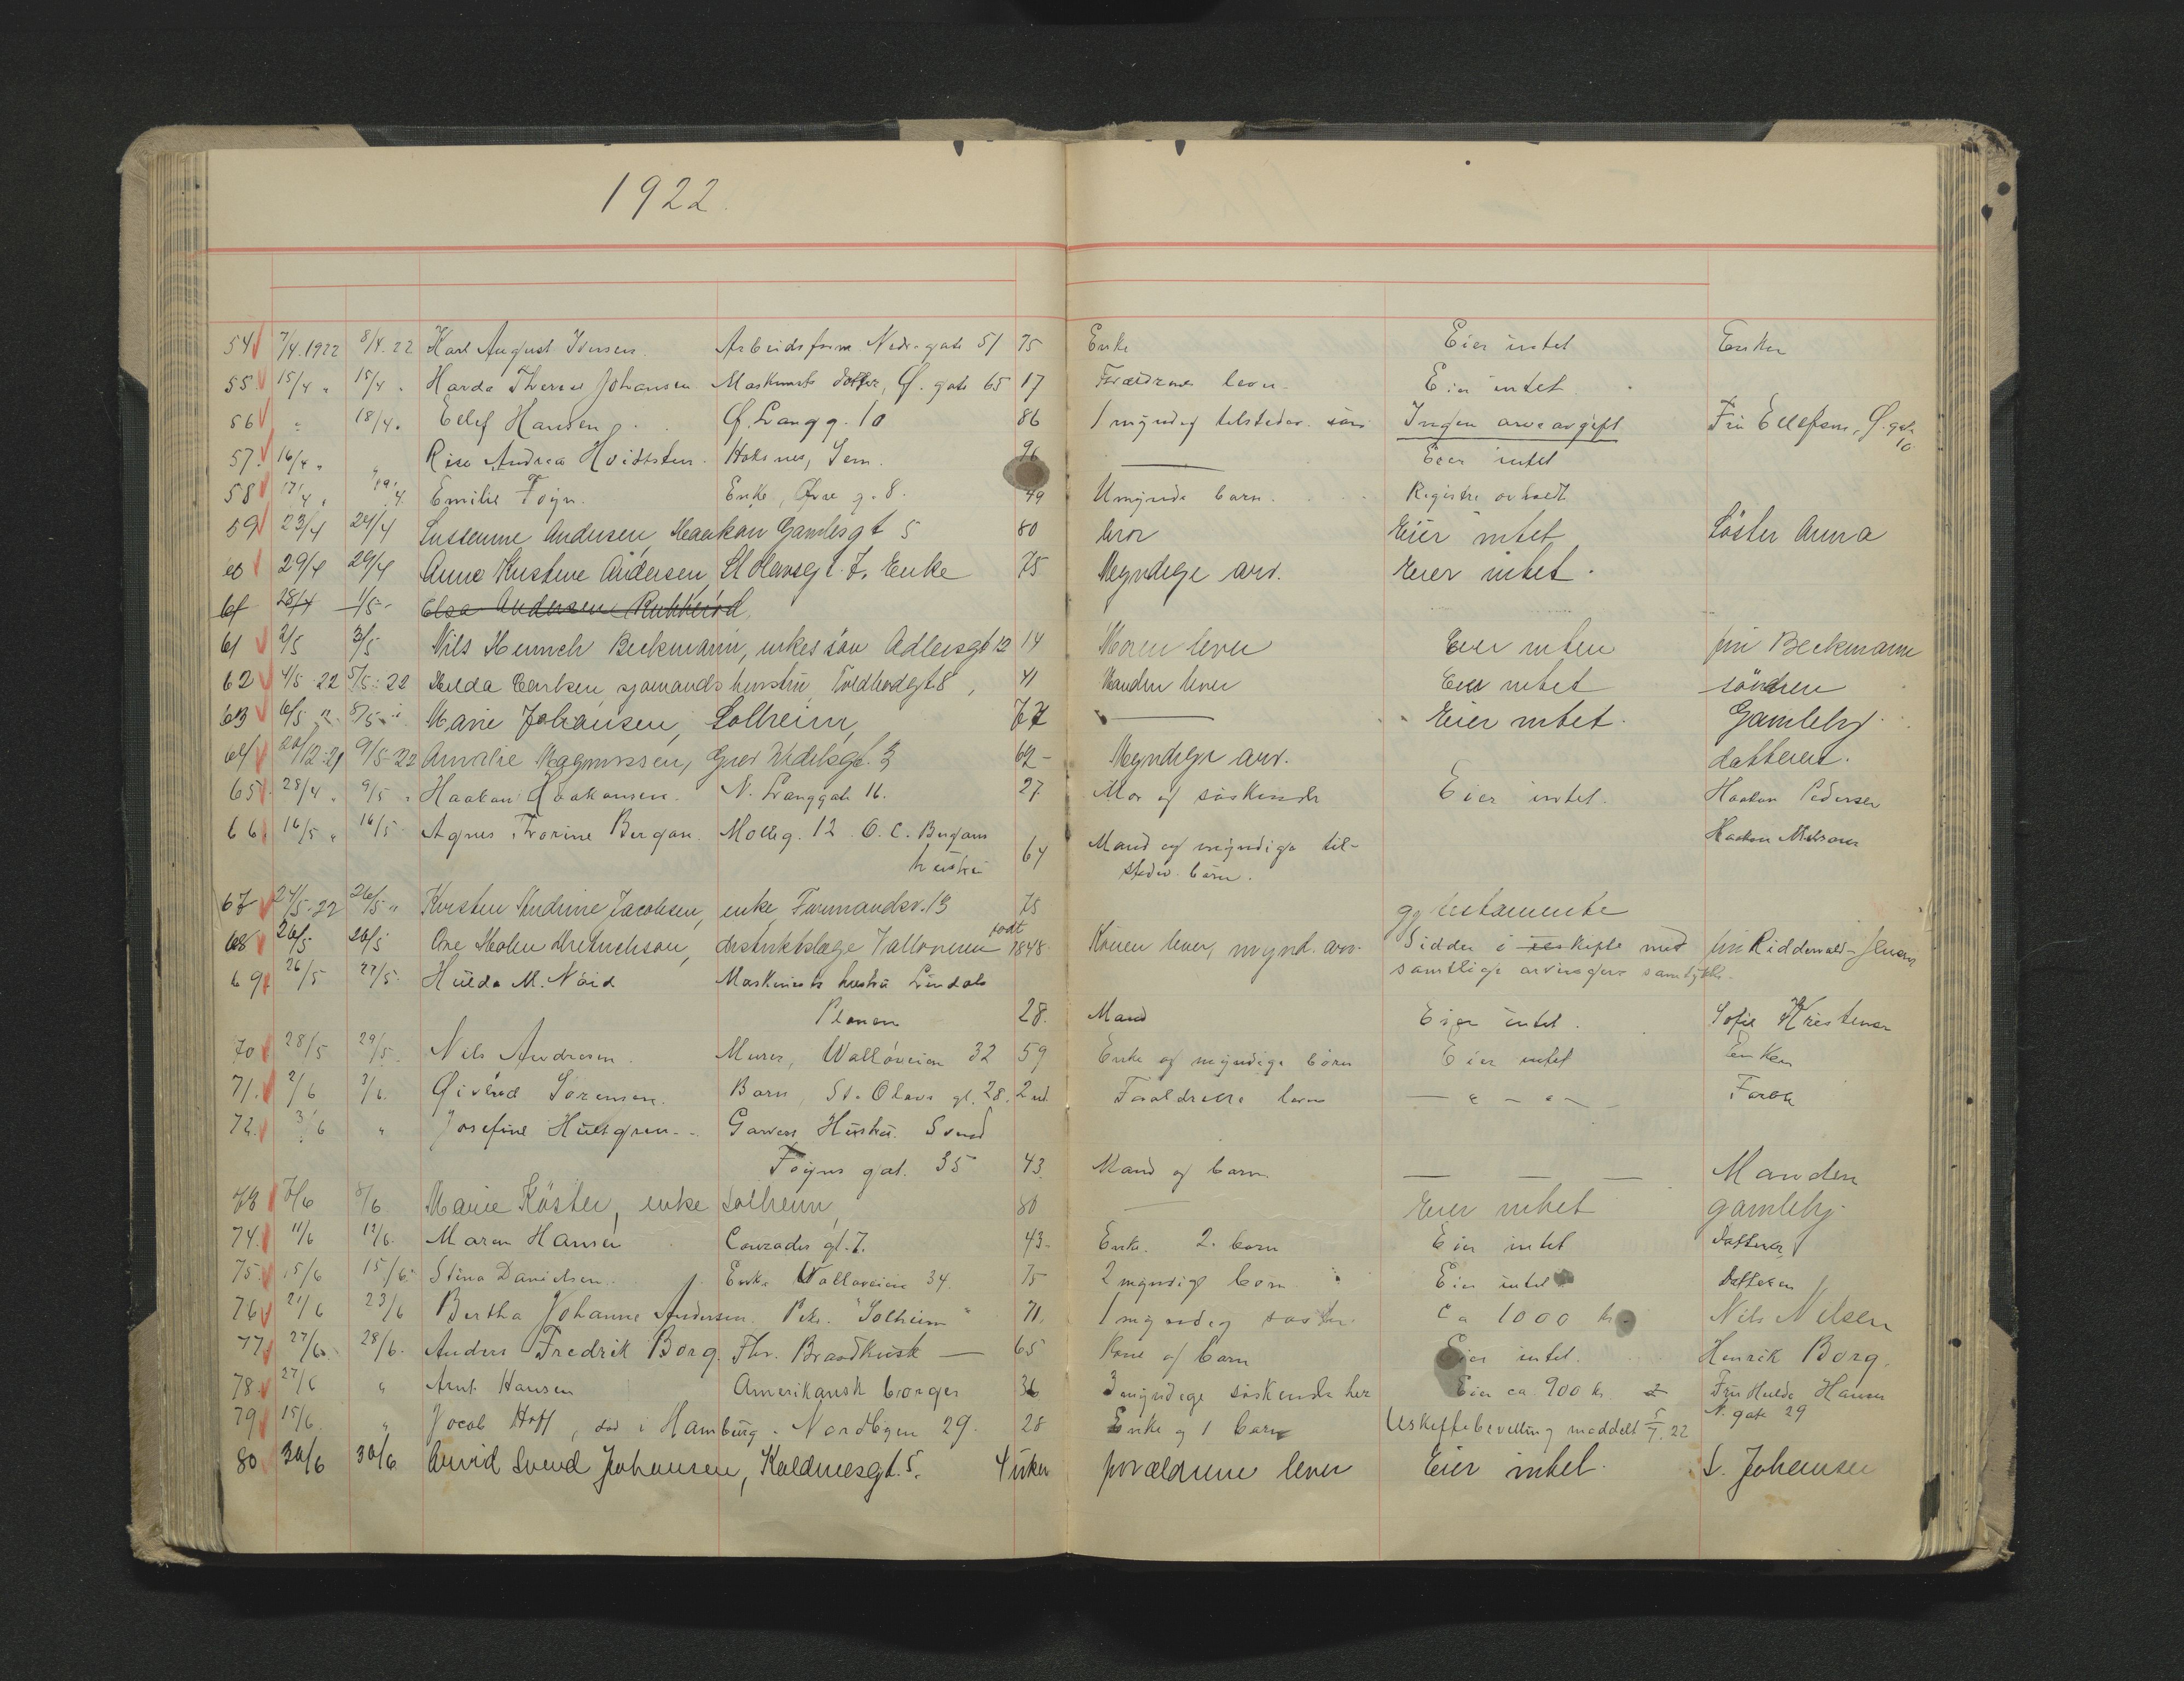 1922.
54 7/4.1922 8/4.22 Karl August Iversen. Arbeidsform Nedregate 51 75 Enke Eier intet Enken
55 15/4 " 15/4 " Harda Therese Johansen Maskinists datter, Ø. gate 65 17 Forældrene lever Eier intet
56 " 18/4 " Ellef Hansen Ø. Langg. 10 86 1 myndig tilstedev. søn Ingen arveavgift Fru Ellefsen, Ø. gate 10
57. 16/4 " " Andrea Hvidtsten. Sem. 96 — Eier intet
58 17/4 " 19/4 Emilie Foyn. Enke, Øvre g. 8. 49 Umynd. barn. Registr. avholdt
59 23/4 24/4 Andersen, Haakon Gamlesgt 5 80 bror Eier intet Söster Anna
60 29/4 29/4 Anne Kristine Andersen, St Olavsgt. 7. Enke 75 Myndige arv. Eier intet.
61 28/4 1/5 Elsa Andersen
61 2/5 3/5 Nils Henrich Beckmann, enkes sön Adlersgt 12 14 Moren lever Eier intet fru Beckmann
62 4/5-22 5/5-22 Hulda Carlsen, sjømands hustru Toldbodgt. 8, 41 Manden lever Eier intet
63 6/5 " 8/5 " Marie Johansen, Solheim, 77 — Eier intet. Gamlehj.
64 20/12-21 9/5-22 Amalie Magnussen, Grev Wedelsgt. 3 62 - Myndige arv. datteren.
65 28/4 " 9/5 " Haakon Haakonsen. N. Langgate 16. 27 Mor og søskende Eier intet. Haakon Pedersen
66 16/5 " 16/5 Agnes Thorine Bergan. Mölleg. 12 O. C. Bergans Haakon
hustru 64 Mand og myndige til-
stedev. børn.
67 24/5-22 26/5 " Kirsten Andrine Jacobsen, enke, Farmandsv. 13 75 gj testamente
68 26/5 26/5 Ove Holen district­slæge Valloveien født 1848. Konen lever, mynd. arv. Sidder i uskifte med fru Ridderwald-Jensen
samtlige arvingers samtykke.
69 26/5 27/5. Hulda M. Maskinists hustru Lindals
Planen 28. Mand Eier intet. Sofie Kristensen
70 28/5 29/5. Nils Andresen. Murer, Wallöveien 32 59 Enke og myndige børn Eier intet Enken
71. 2/6 3/6. Øivind Sørensen. Barn, St. Olavs gt. 28. 2 md Forældrene lever — " — " — Faren
72. 3/6 " Josefine Hultgren Garvers Hustru. Svend
Foyns gat. 35 43. Mand og barn — — — Manden
73 7/6 8/6 Marie Köster, enke Solheim, 80 — Eier intet gamlehj.
74. 11/6 12/6. Maren Hansen Conrades gt. 7. 43- Enke. 2. barn Eier intet Datteren
75. 15/6 15/6. Stina Danielsen. Enke Valloveien 34. 75 2 myndige barn Eier intet Datteren
76 21/6 23/6 Bertha Johanne Andersen. Pike. "Solheim" 71. 1 myndig søster ca 1000 kr. Nils Nilsen
77 27/6. 28/6. Anders Fredrik Borg. Fhv. Brandkusk — 65 Kone og barn Eier intet. Henrik Borg.
78 27/6 " Arnt Hansen Amerikansk borger 36 3 myndige søskende her Eier ca. 900 kr. Fru Hulda Hansen
N. gate 29
79 15/6 " Jacob Hoff, død i Hamburg. Nordbyen 29. 28 Enke og 1 barn Uskiftebevilling meddelt 5/7. 22
80 30/6 30/6 Arvid Svend Johansen, Kaldnesgt. 5. 4 uker forældrene lever Eier intet. S. Johansen